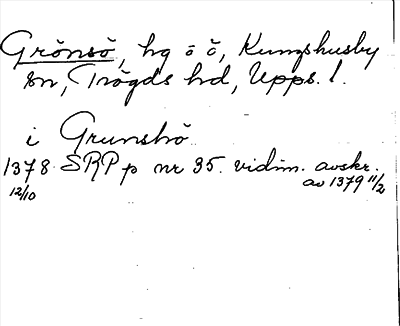 Grönsö, hg o ö, Kungshusby
sn, Trögds hd, Upps. l.
i Grunshø
1378 SRP p nr 35. vidim. avskr.
12/10 av 1379 11/2